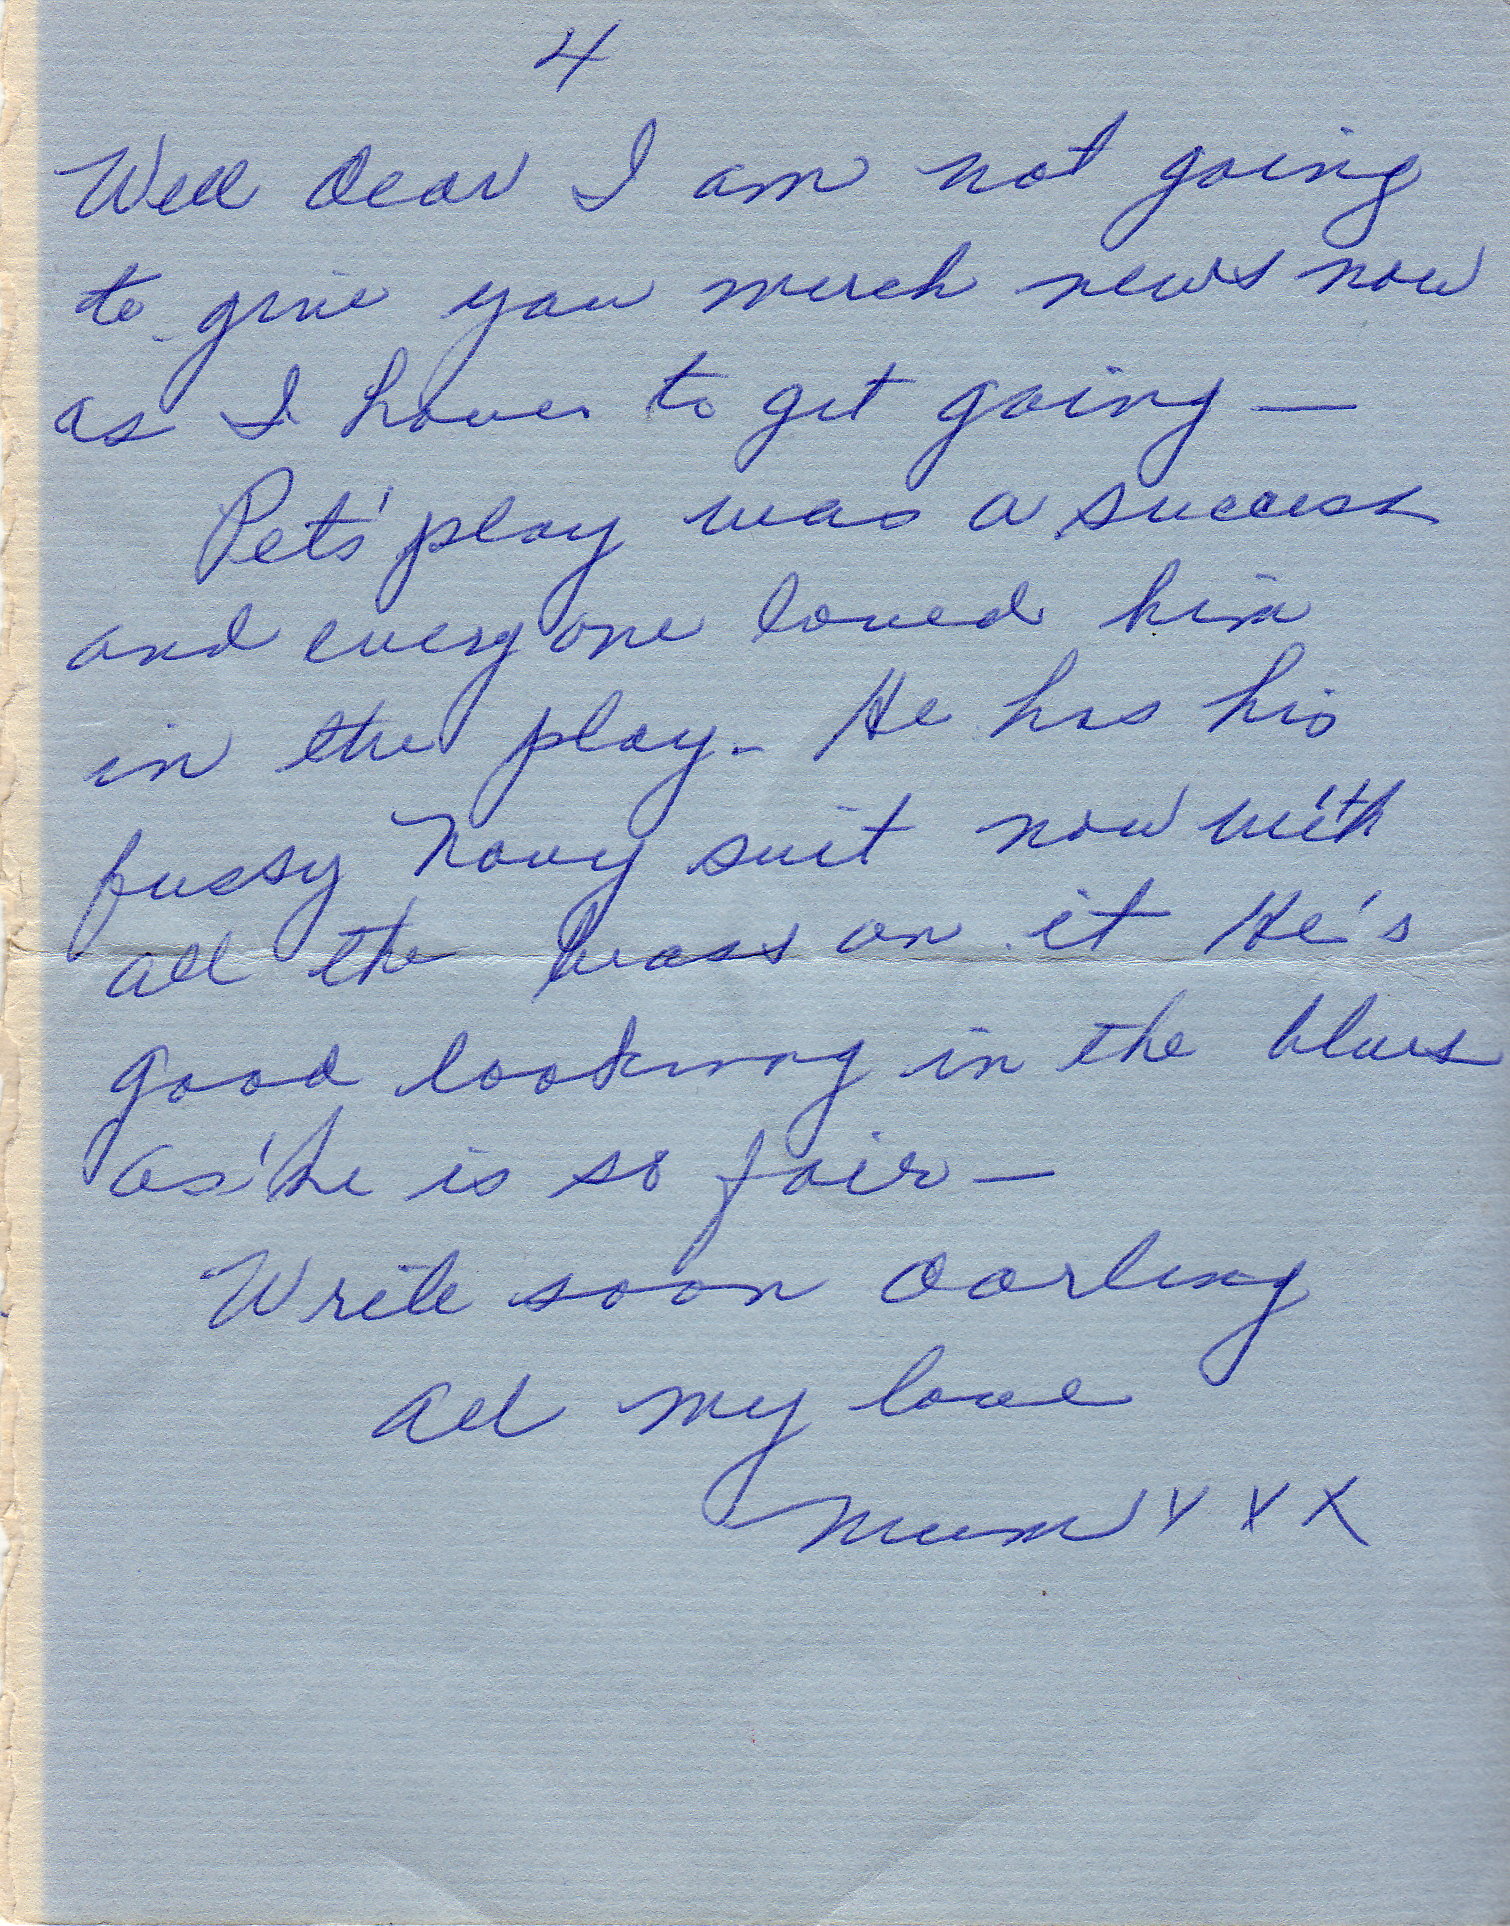 4
Well dear I am not going
to give you much news now
as I have to get going —
Pets' play was a success
and everyone loved him
in the play. He has his
fussy Navy suit now with
all the brass on it He's
good looking in the blues
as he is so fair —
Write soon darling
all my love
Mum X X X